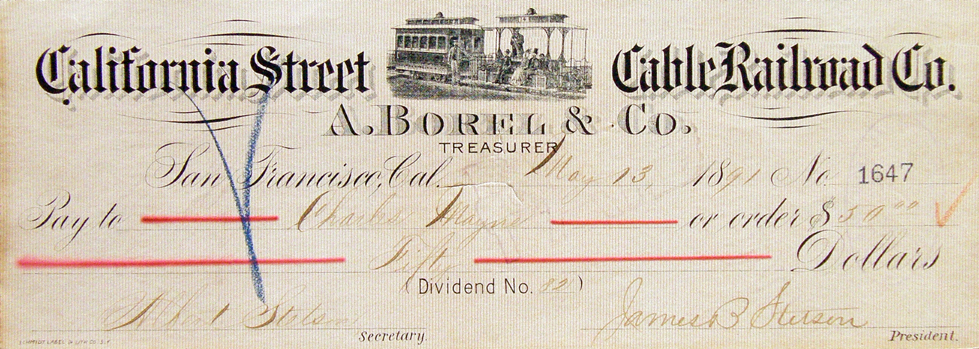 California Street Cable Railroad Co.
A. BOREL & Co.
TREASURER
San Francisco, Cal. May 13, 1891 No. 1647
Pay to Charles Mayne or order $ 50.00
Fifty Dollars
(Dividend No. 82)
Albert Stetson Secretary.
James B Stetson President.
SCHMIDT LABEL & LITH. CO. S.F.